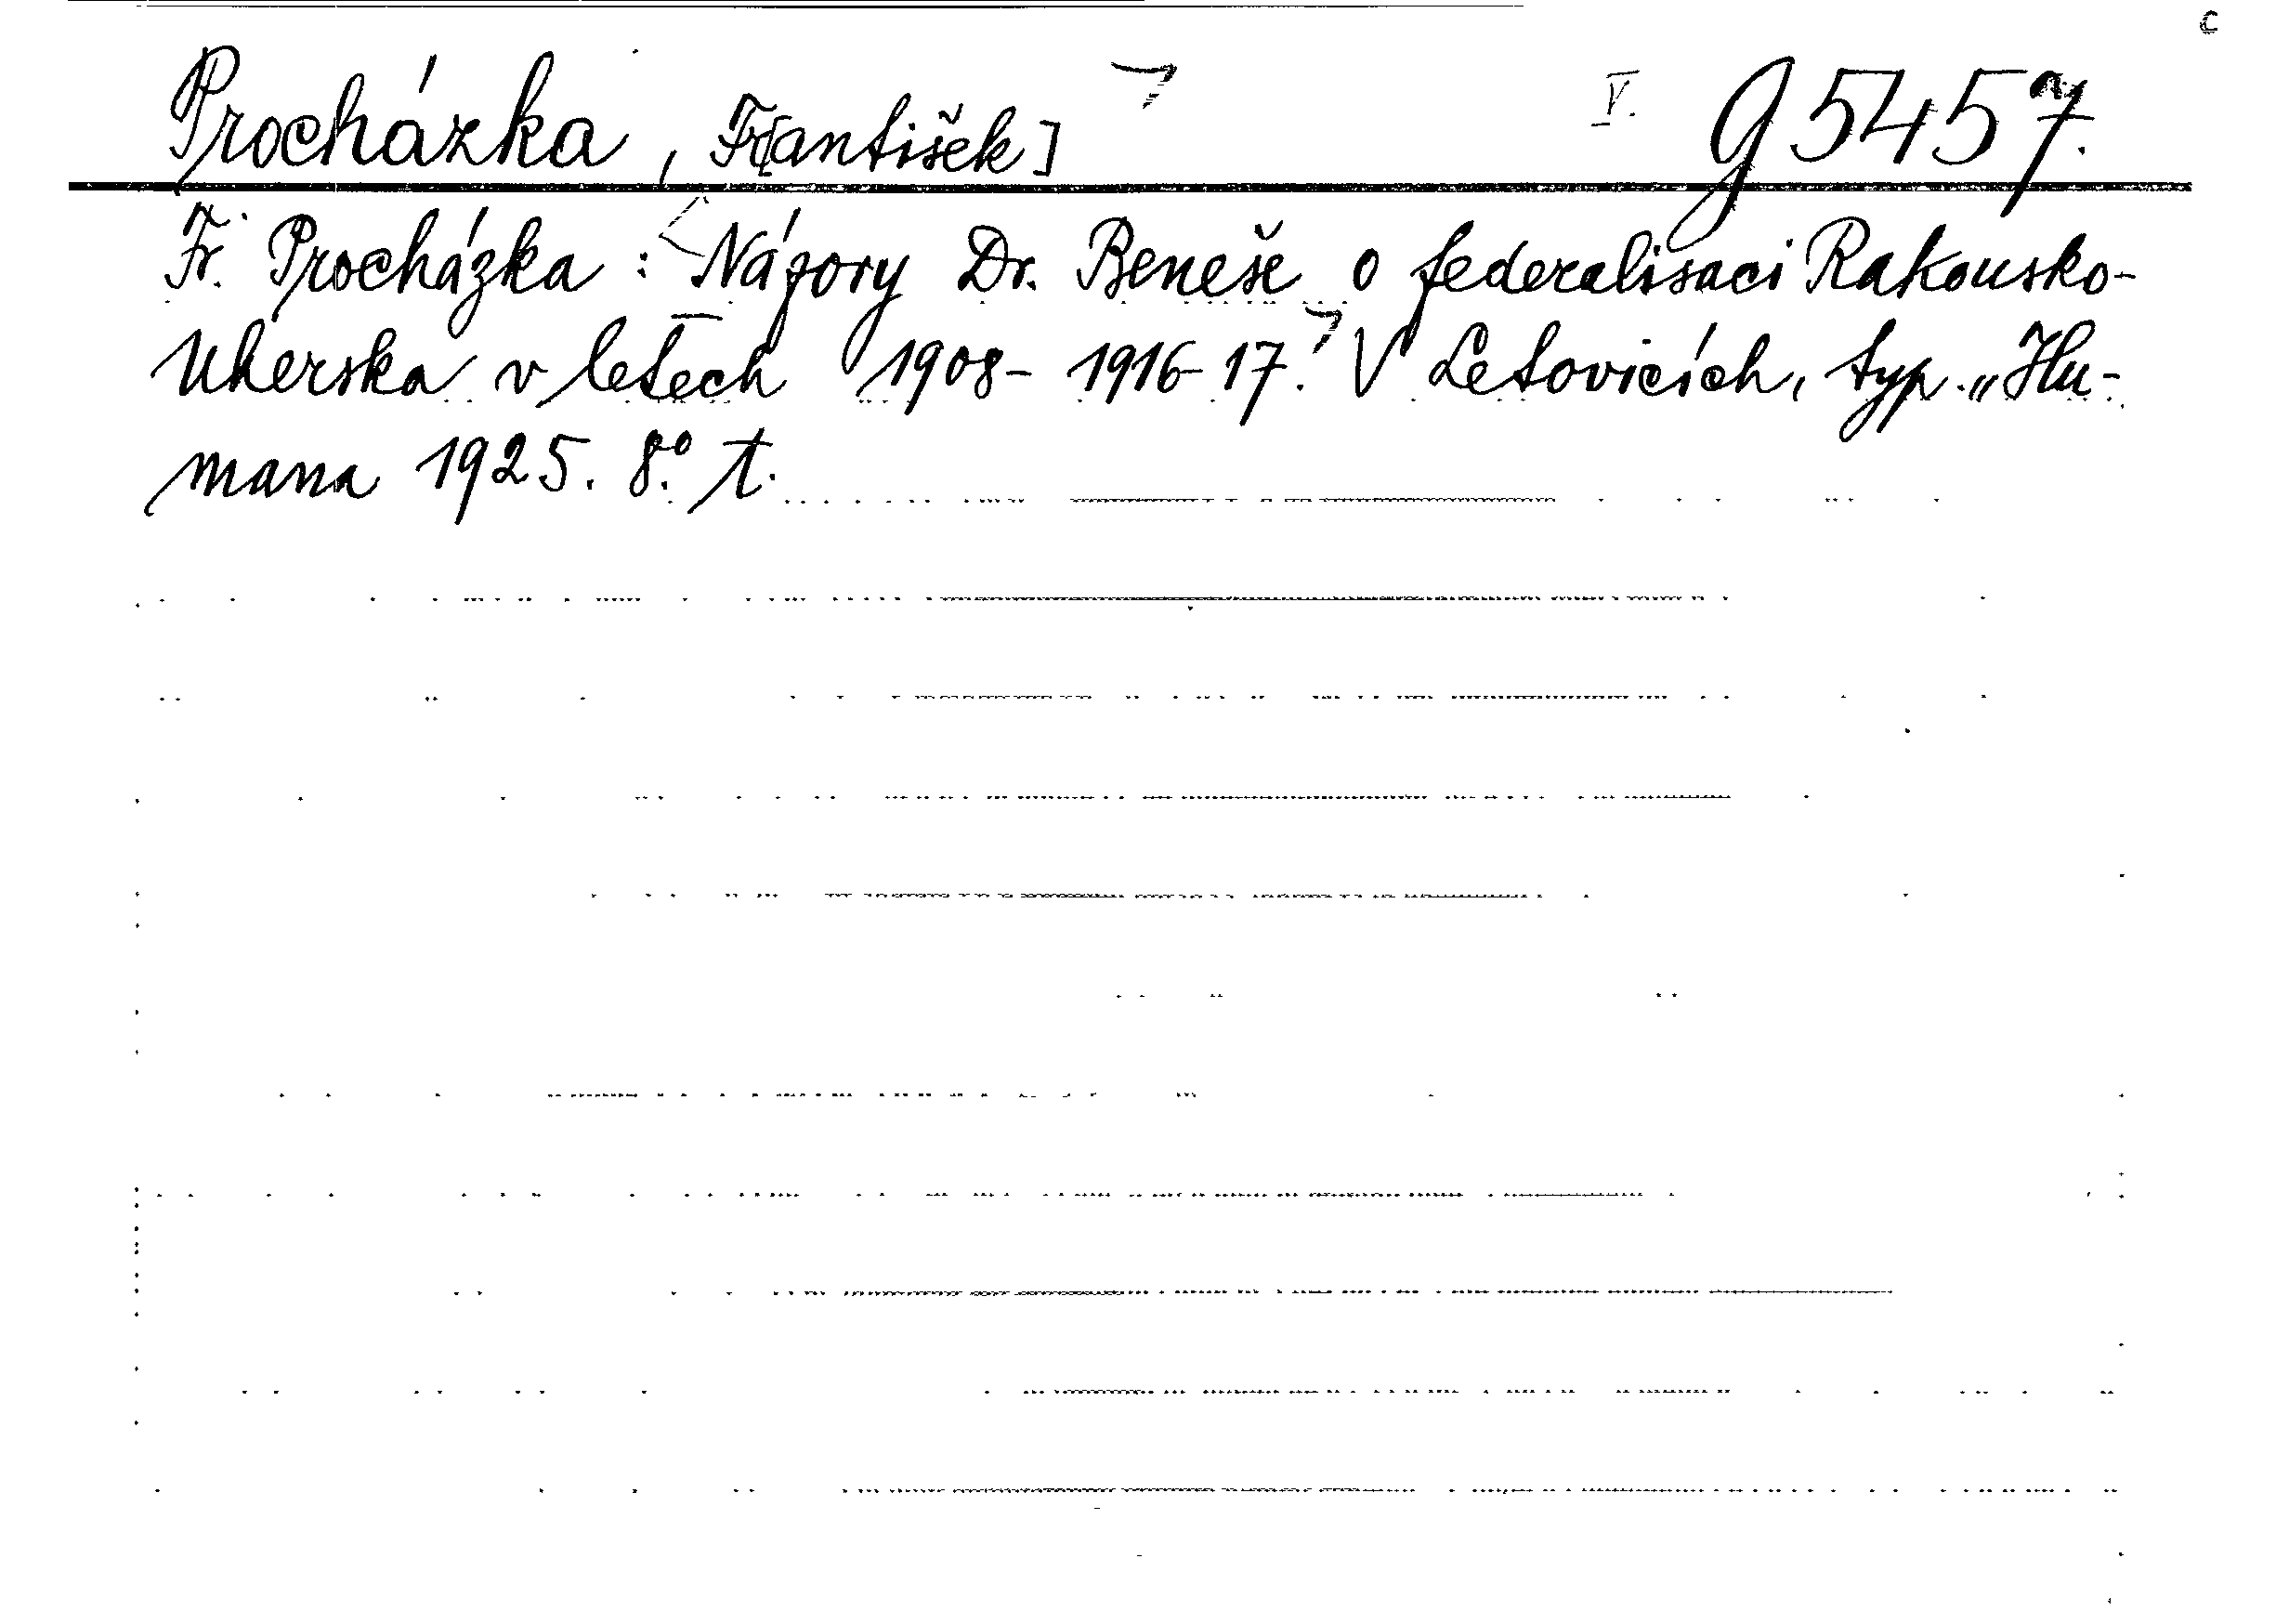 c
Procházka, Fr[antišek] V. g 5457.
Fr. Procházka: Názory Dr. Beneše o federalisaci Rakousko-
Uherska v letech 1908-1916-17. V Letovicích, typ. „Hu-
mana 1925. 8.° t.